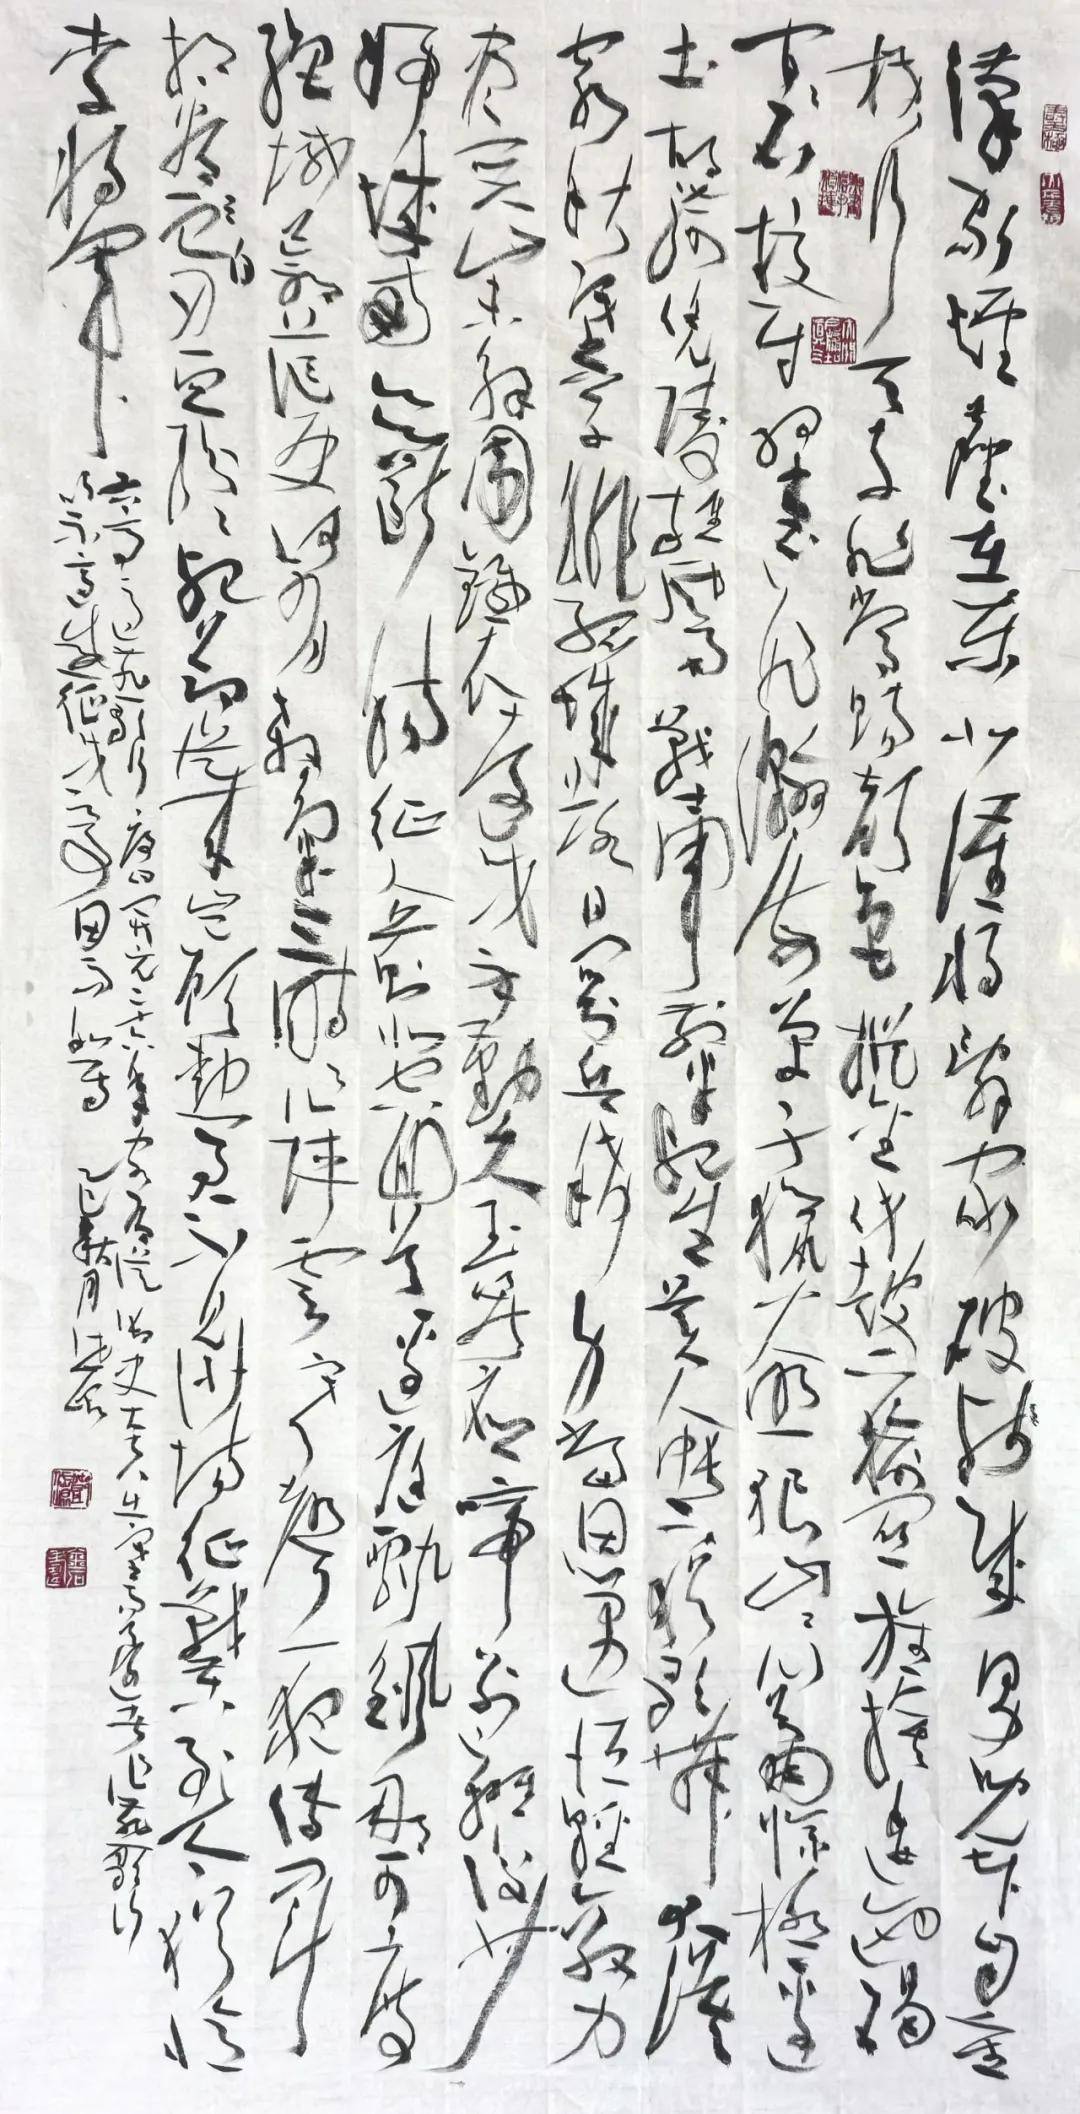 漢家煙塵在東北漢將辭家破殘賊男兒本自重
橫行天子非常賜顏色摐金伐鼓下榆關旌旆逶迤碣
石間校尉羽書飛瀚海單于獵火照狼山山川蕭條極邊
土胡騎憑陵雜風雨戰士軍前半死生美人帳下猶歌舞大漠
窮秋塞草腓孤城落日鬥兵稀身當恩遇恒輕敵力
盡關山未解圍鐵衣遠戍辛勤久玉箸應啼別離後少
婦城南欲斷腸征人薊北空回首邊庭飄颻那可度
絕域蒼茫更何有殺氣三時作陣雲寒聲一夜傳刁斗
相看白刃血紛紛死節從來豈顧勳君不見沙場征戰苦至今猶憶
李將軍
唐開元二十六年客有從御史大夫出塞而還者作燕歌行
以示高適征戍之事因而和焉 乙巳秋月